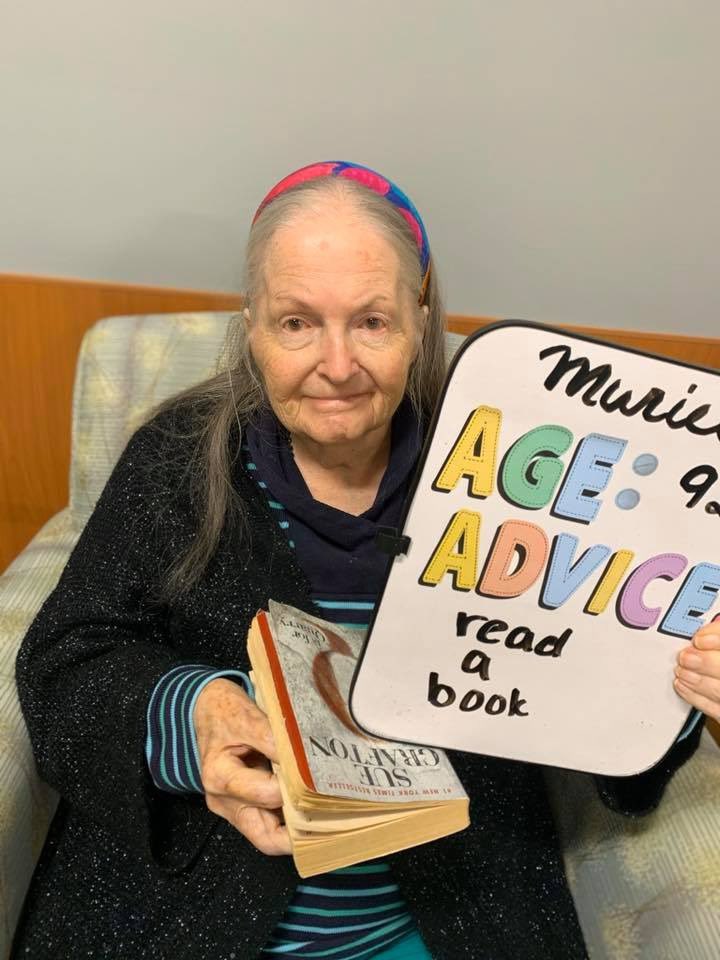 Murie
AGE: 92
ADVICE
read
a
book
#1 NEW YORK TIMES BESTSELLER
SUE
GRAFTON
is for
Quarry